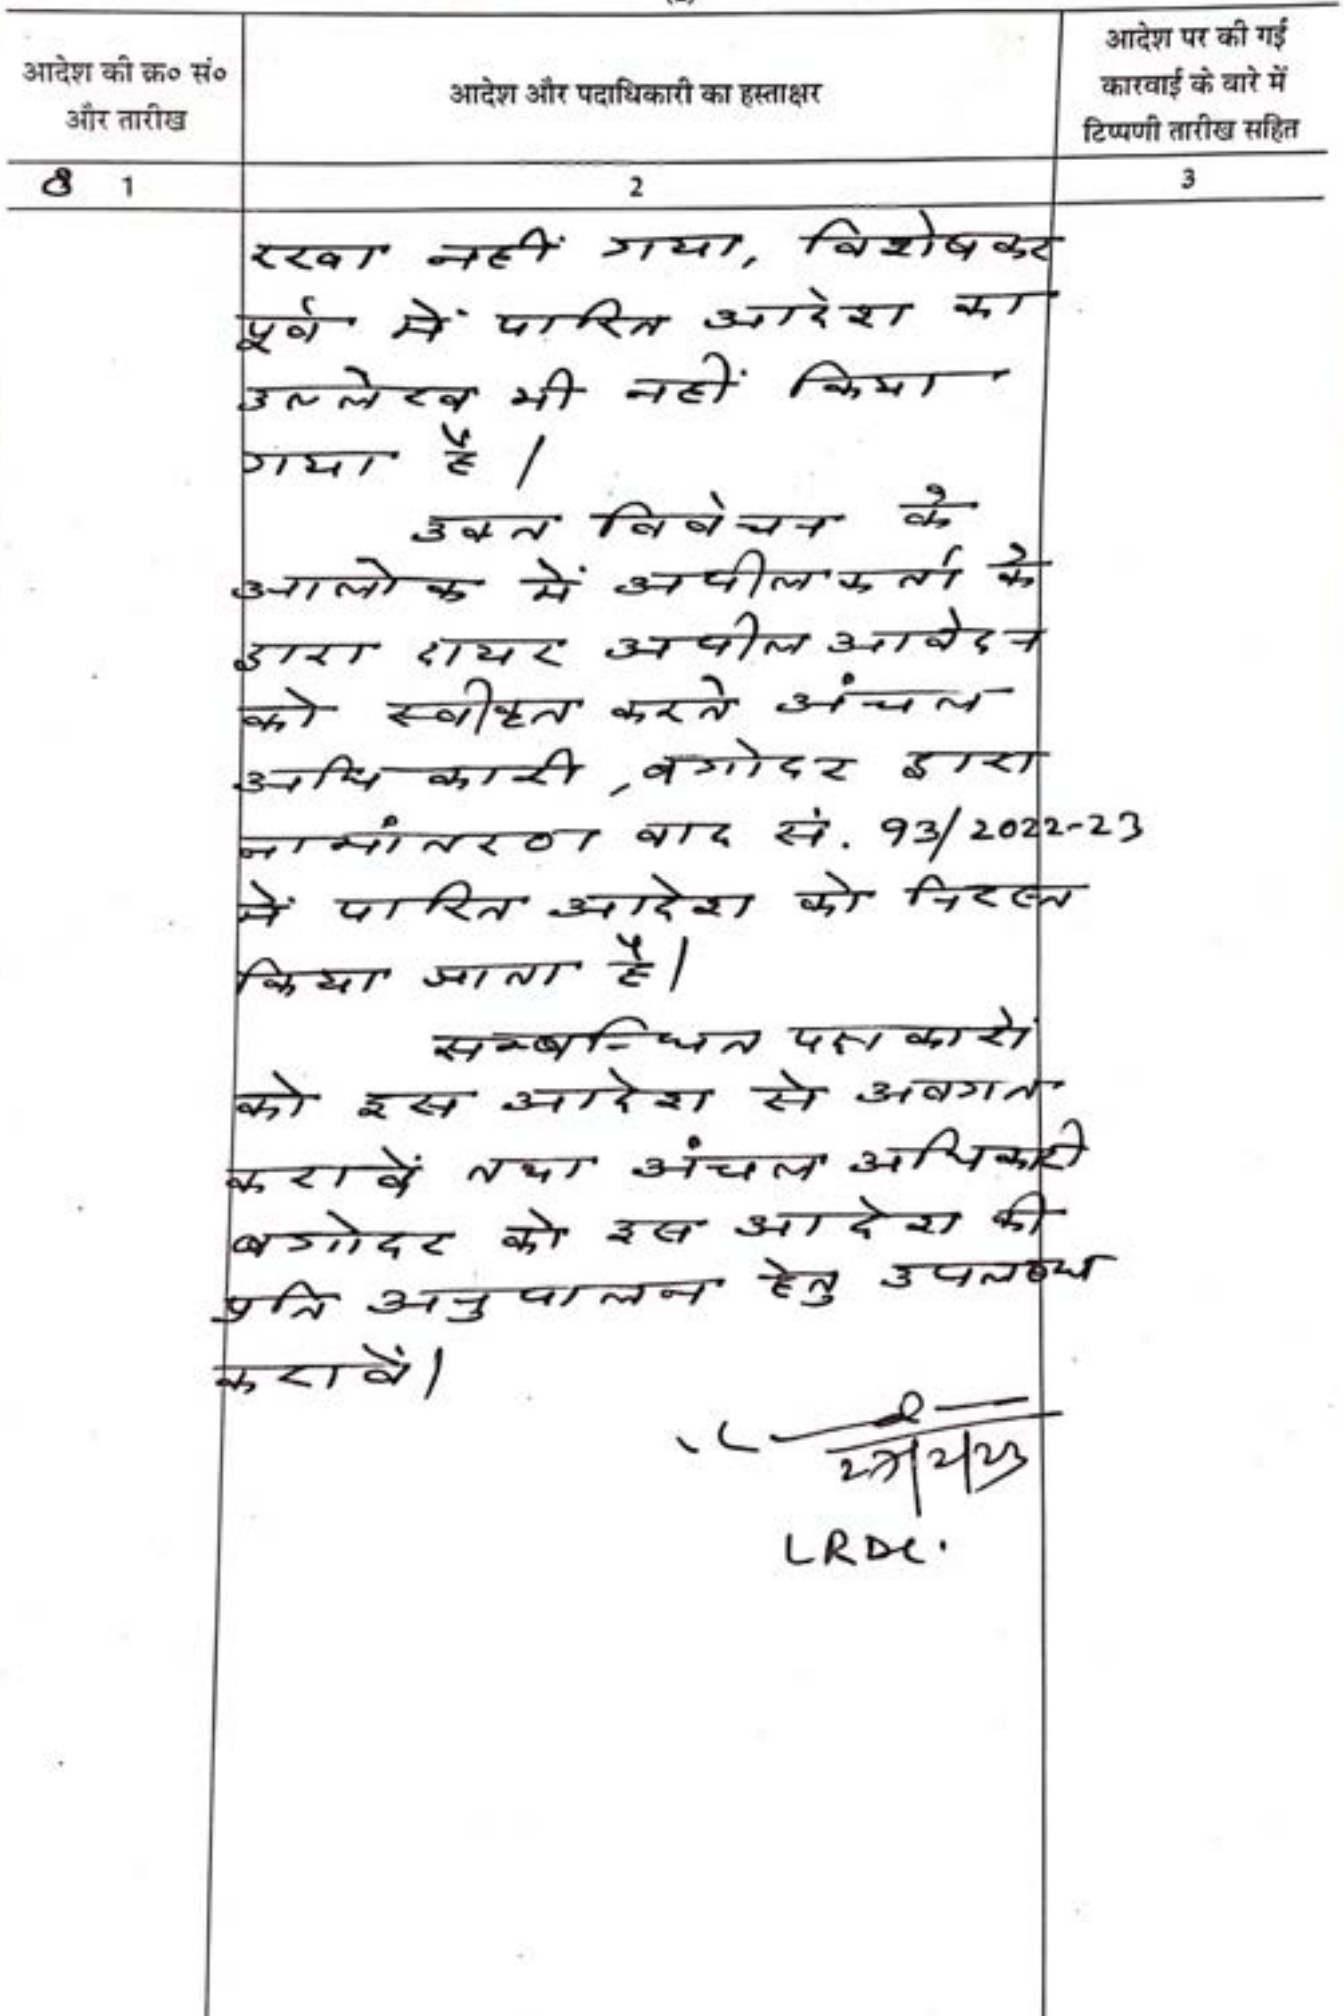 आदेश की क्र० सं०
और तारीख
आदेश और पदाधिकारी का हस्ताक्षर
आदेश पर की गई
कारवाई के बारे में
टिप्पणी तारीख सहित
8 1
2
3
रखा नहीं गया, विशेषकर
पूर्व में पारित आदेश का
उल्लेख भी नहीं किया
गया है।
उक्त विवेचन के
आलोक में अपीलकर्ता के
द्वारा दायर अपील आवेदन
को स्वीकृत करते अंचल
अधिकारी, बगोदर द्वारा
नामांतरण वाद सं. 93/2022-23
में पारित आदेश को निरस्त
किया जाता है।
सम्बन्धित पक्षकारों
को इस आदेश से अवगत
करावें तथा अंचल अधिकारी
बगोदर को इस आदेश की
प्रति अनुपालन हेतु उपलब्ध
करावें।
LRDC.